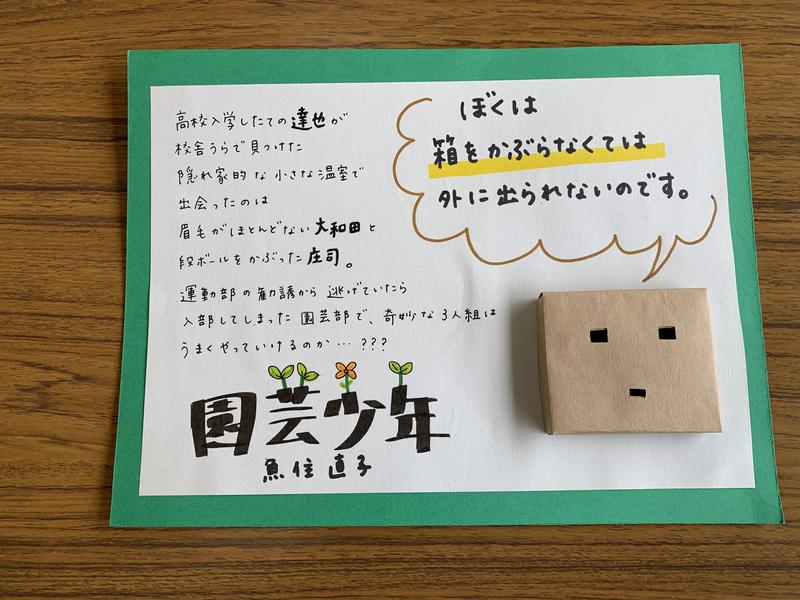 高校入学したての達也が
校舎うらで見つけた
隠れ家的な小さな温室で
出会ったのは
眉毛がほとんどない大和田と
段ボールをかぶった庄司。
運動部の勧誘から逃げていたら
入部してしまった園芸部で、奇妙な3人組は
うまくやっていけるのか…???
園芸少年
魚住直子
ぼくは
箱をかぶらなくては
外に出られないのです。